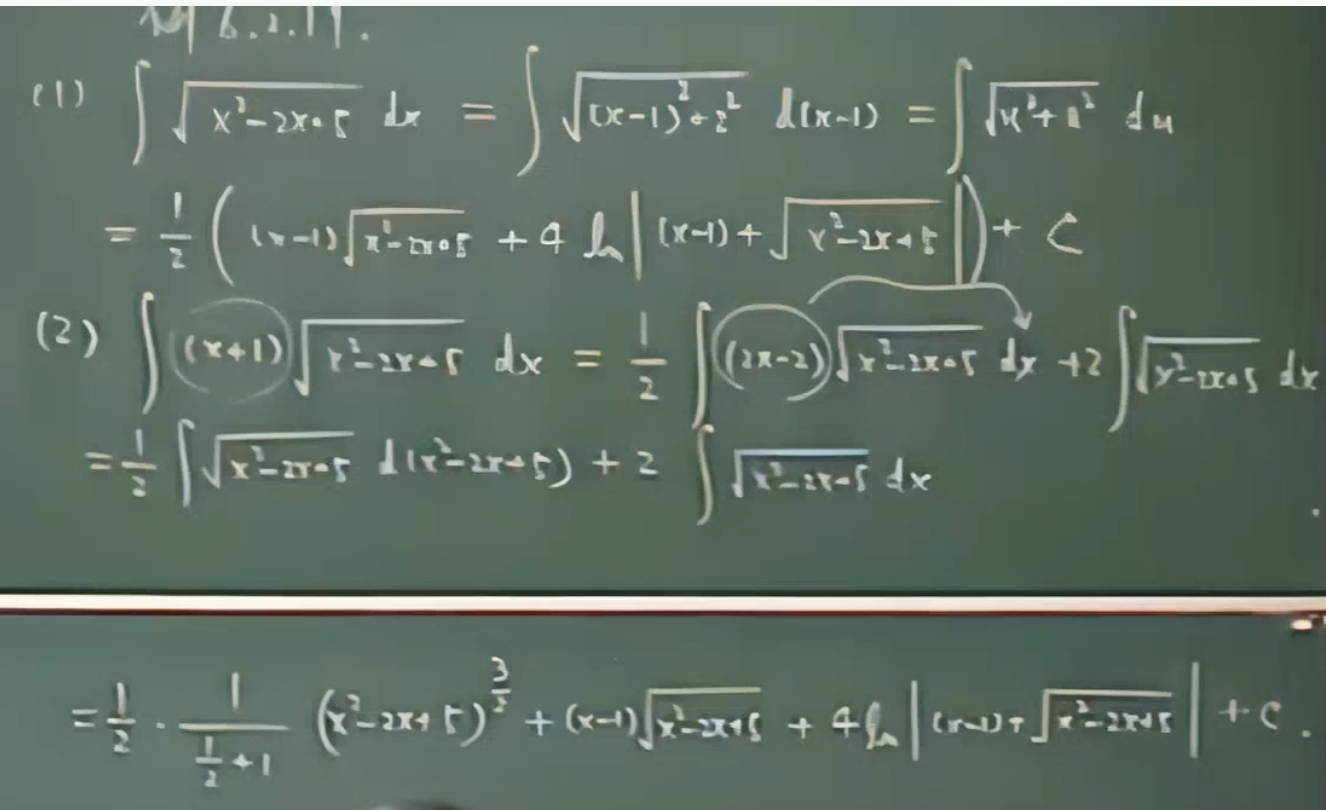 (1) ∫ √(x²-2x+5) dx = ∫ √((x-1)²+2²) d(x-1) = ∫ √(u²+a²) du
= 1/2 ( (x-1)√(x²-2x+5) + 4 ln | (x-1) + √(x²-2x+5) | ) + C
(2) ∫ (x+1) √(x²-2x+5) dx = 1/2 ∫ (2x-2) √(x²-2x+5) dx + 2 ∫ √(x²-2x+5) dx
= 1/2 ∫ √(x²-2x+5) d(x²-2x+5) + 2 ∫ √(x²-2x+5) dx
= 1/2 · 1/(1/2 + 1) (x²-2x+5)^(3/2) + (x-1)√(x²-2x+5) + 4 ln | (x-1) + √(x²-2x+5) | + C.